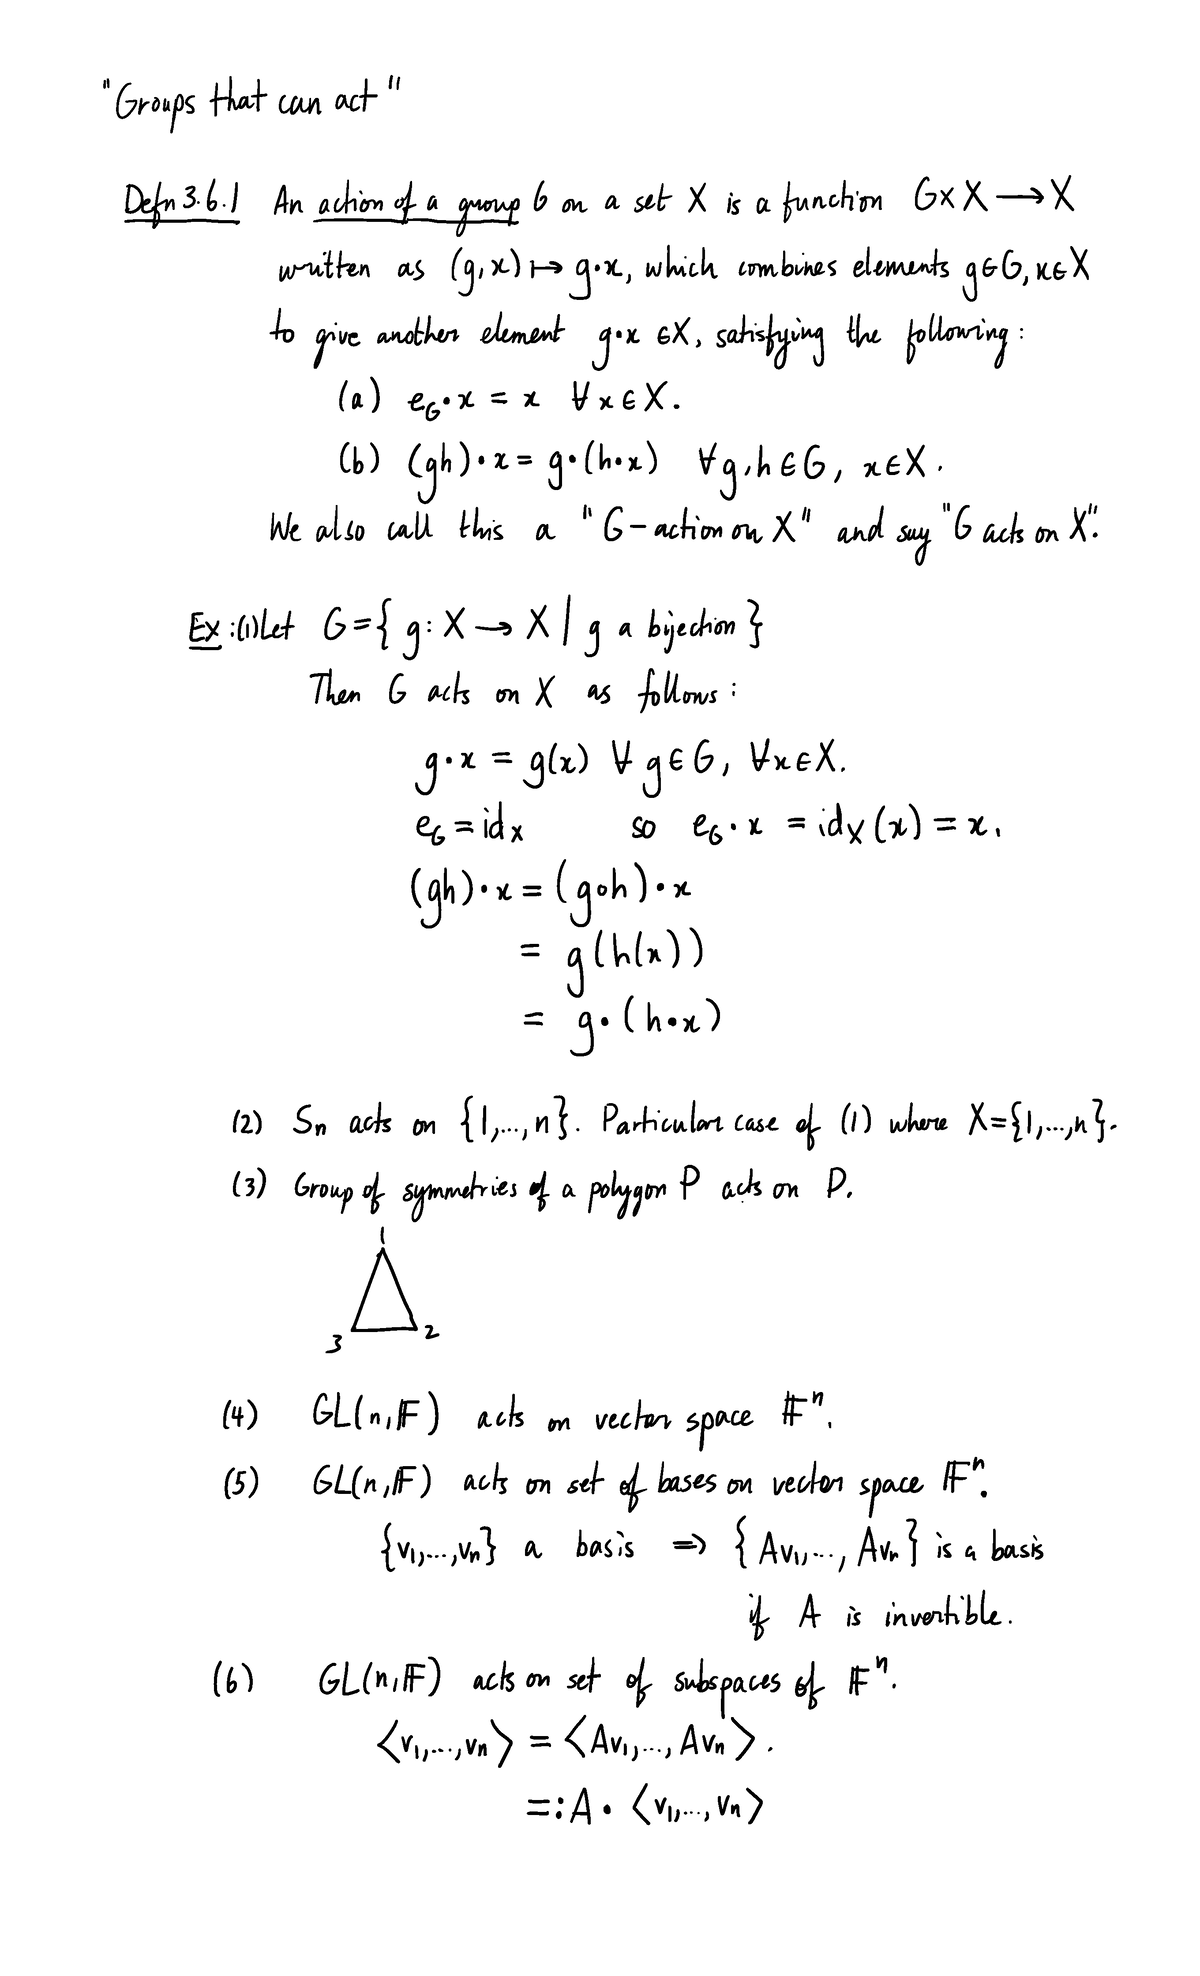 "Groups that can act"
Defn 3.6.1 An action of a group G on a set X is a function G×X⟶X
written as (g,x)↦g·x, which combines elements g∈G, x∈X
to give another element g·x ∈X, satisfying the following:
(a) e_G·x = x ∀x∈X.
(b) (gh)·x = g·(h·x) ∀g,h∈G, x∈X.
We also call this a "G-action on X" and say "G acts on X".
Ex:(1) Let G={g: X→X | g a bijection}
Then G acts on X as follows:
g·x = g(x) ∀g∈G, ∀x∈X.
e_G = id_X so e_G·x = id_X(x) = x.
(gh)·x = (g∘h)·x
= g(h(x))
= g·(h·x)
(2) Sn acts on {1,...,n}. Particular case of (1) where X={1,...,n}.
(3) Group of symmetries of a polygon P acts on P.
1
3 2
(4) GL(n,𝔽) acts on vector space 𝔽ⁿ.
(5) GL(n,𝔽) acts on set of bases on vector space 𝔽ⁿ.
{v₁,...,vₙ} a basis ⇒ {Av₁,..., Avₙ} is a basis
if A is invertible.
(6) GL(n,𝔽) acts on set of subspaces of 𝔽ⁿ.
⟨v₁,...,vₙ⟩ = ⟨Av₁,..., Avₙ⟩.
=: A·⟨v₁,..., vₙ⟩